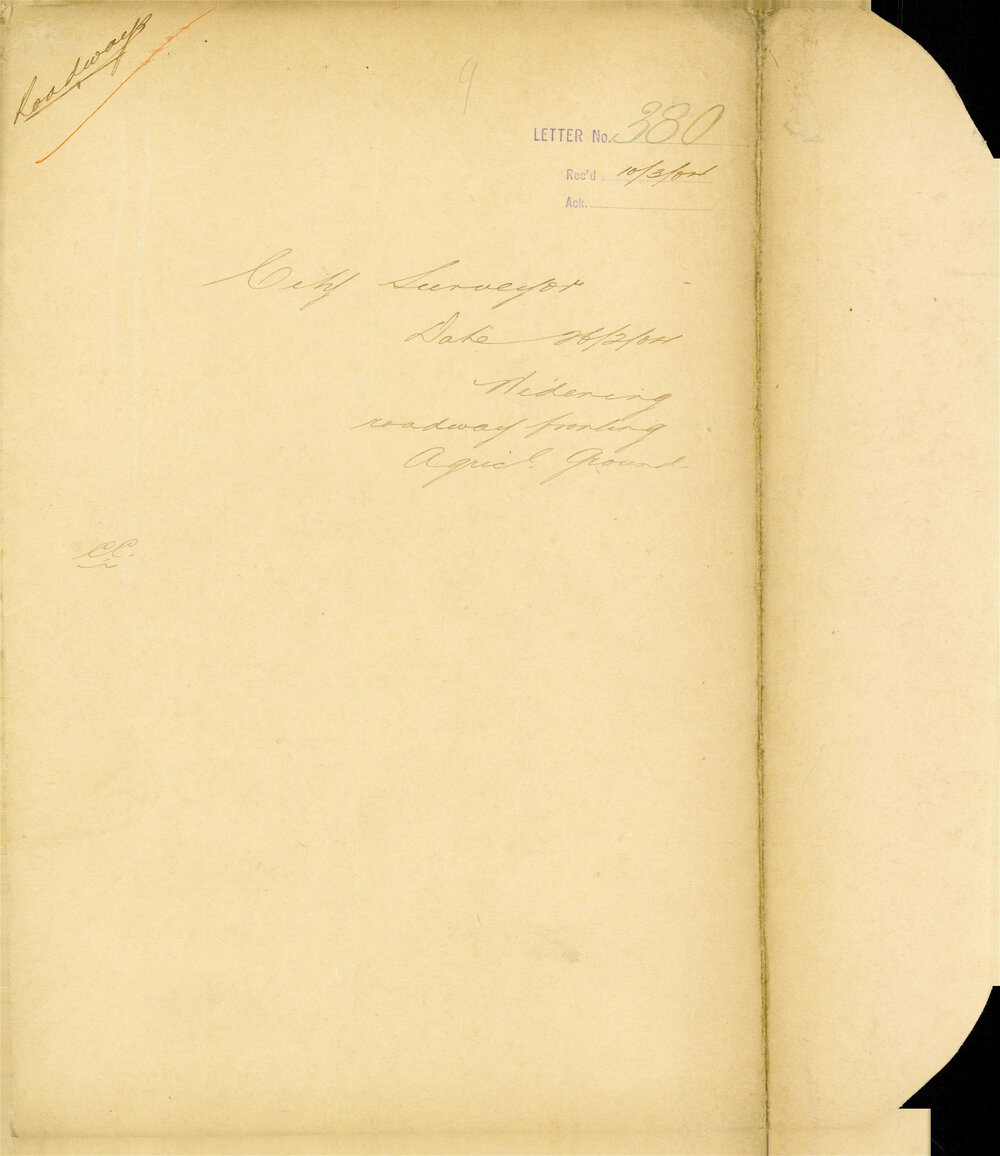 Roadways
9
LETTER No. 380
Rec'd 10/3/04
Ack.
City Surveyor
Date 26/2/04
Widening
roadway fronting
Agricl. Ground.
CC.